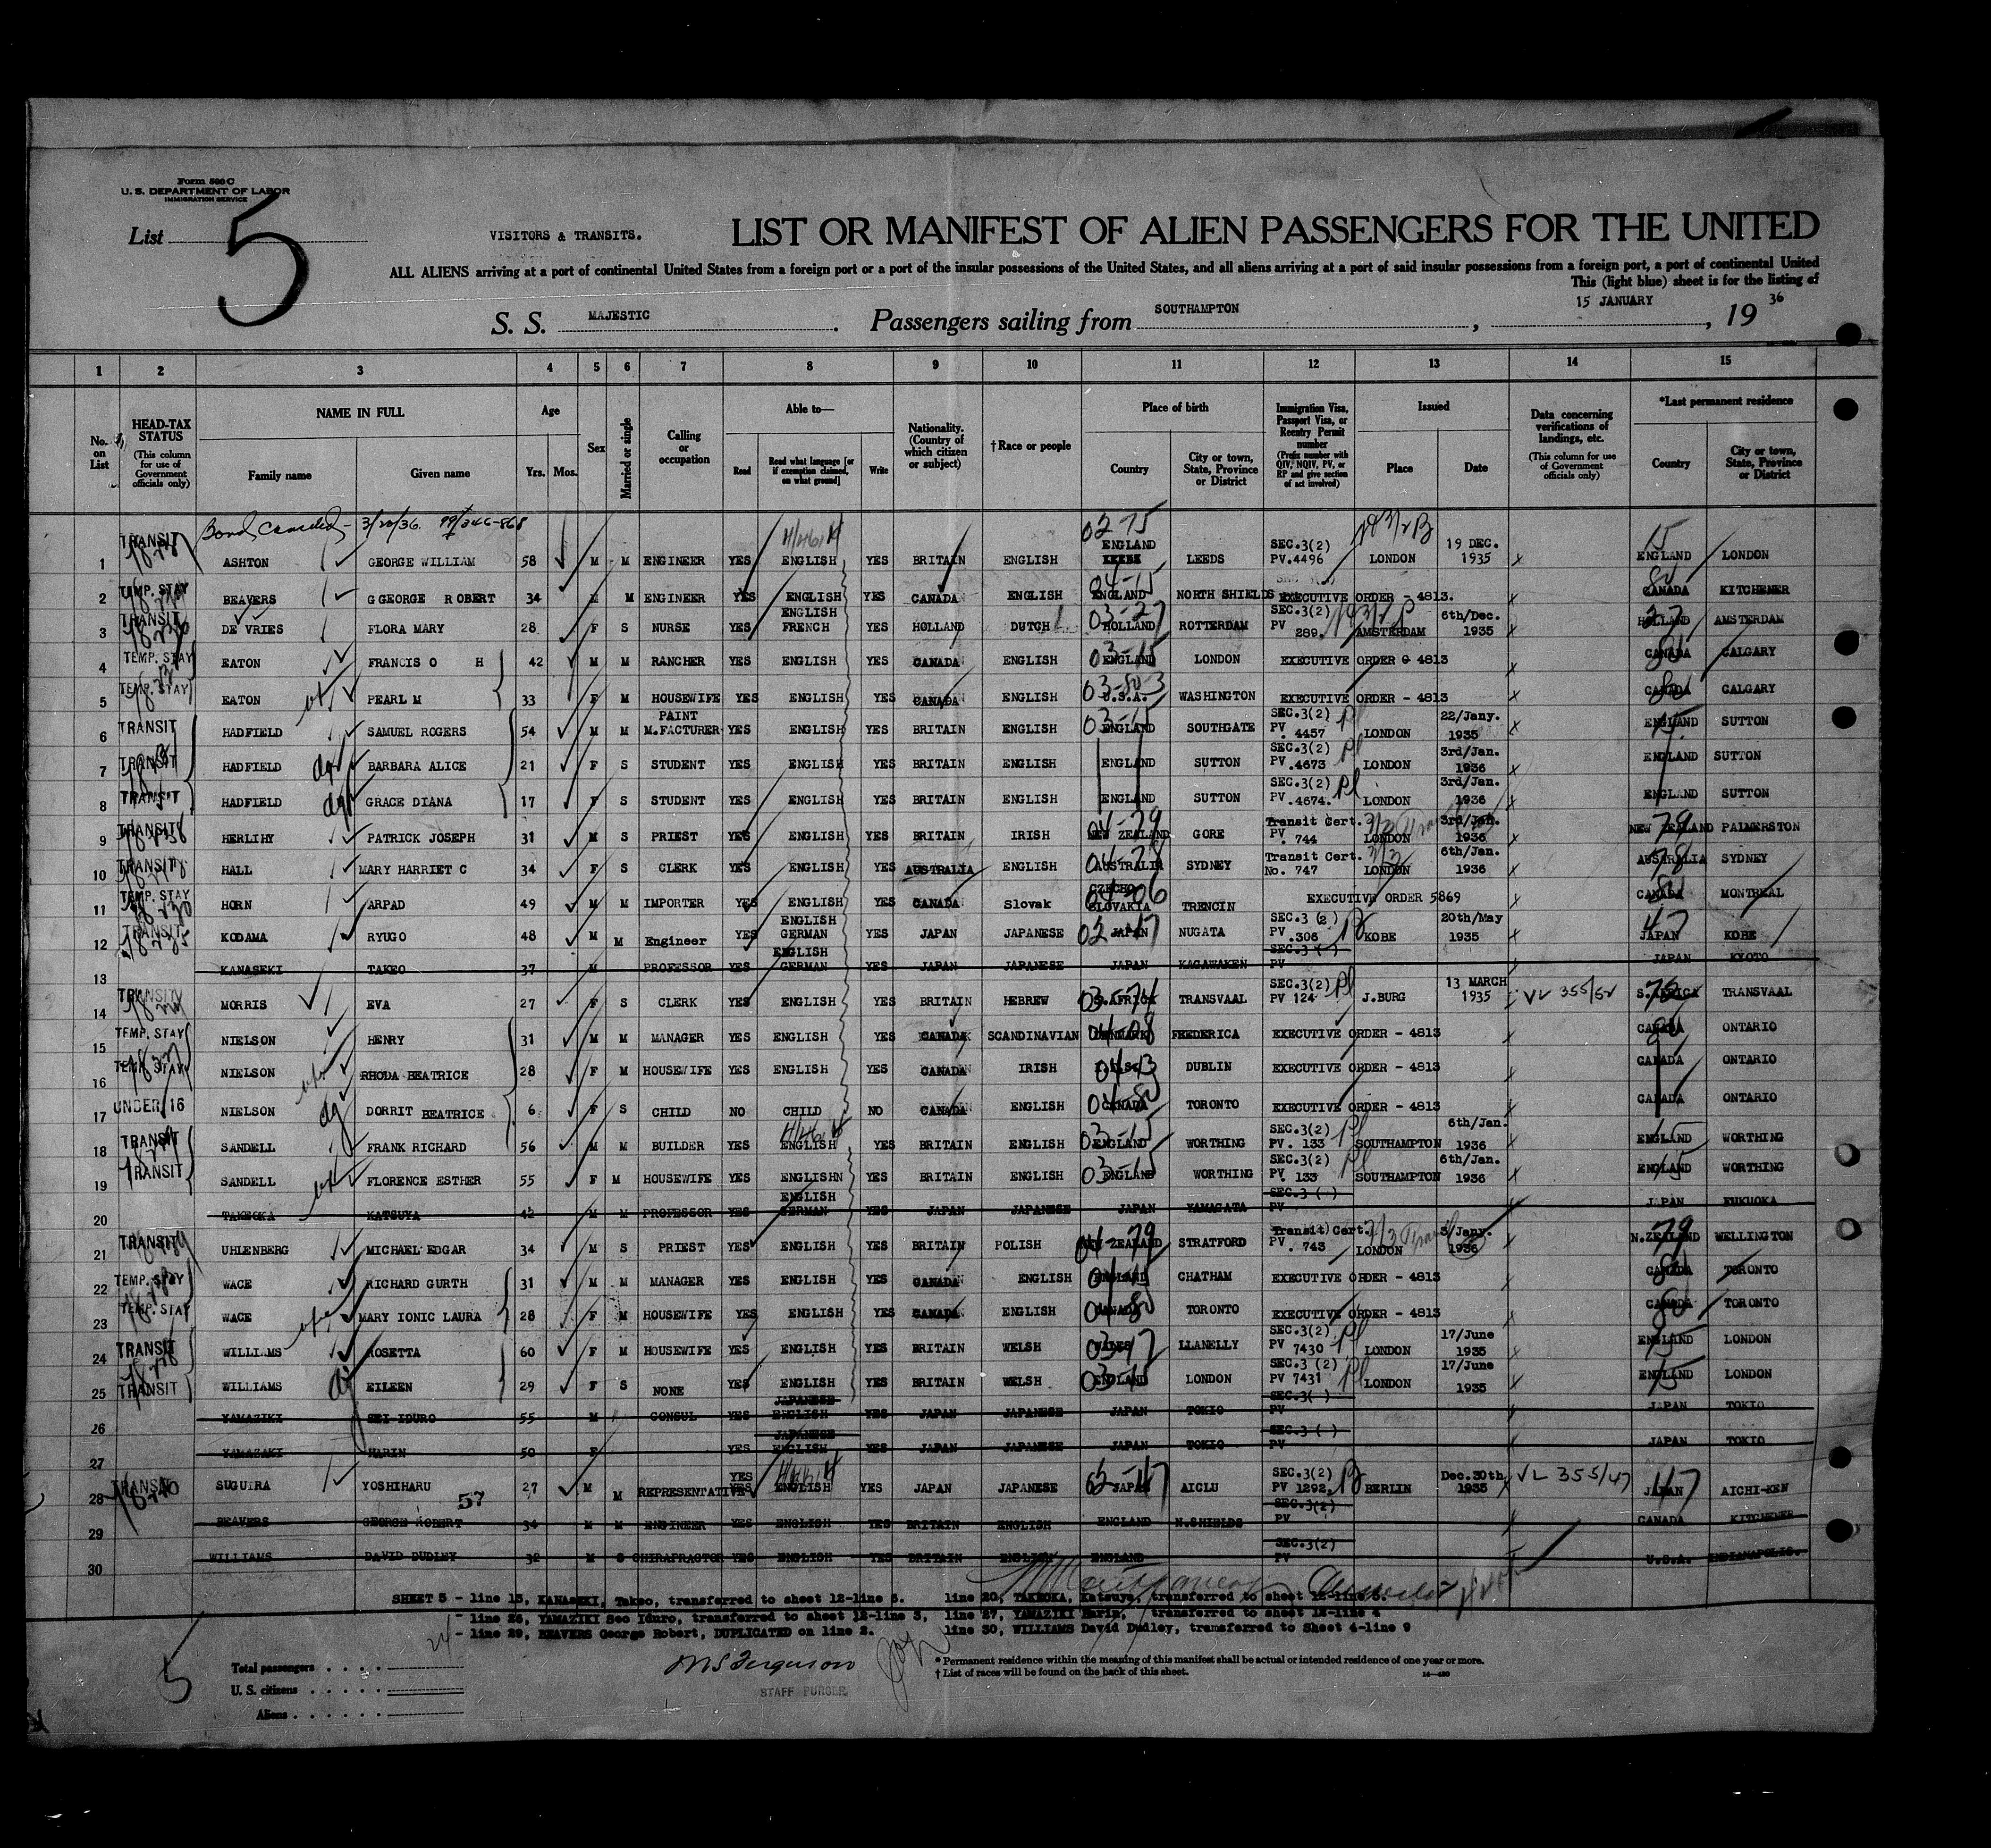 Form 500 C
U. S. DEPARTMENT OF LABOR
IMMIGRATION SERVICE
List 5
VISITORS & TRANSITS.
LIST OR MANIFEST OF ALIEN PASSENGERS FOR THE UNITED
ALL ALIENS arriving at a port of continental United States from a foreign port or a port of the insular possessions of the United States, and all aliens arriving at a port of said insular possessions from a foreign port, a port of continental United
This (light blue) sheet is for the listing of
S. S. MAJESTIC. Passengers sailing from SOUTHAMPTON, 15 JANUARY, 19 36
1 2 3 4 5 6 7 8 9 10 11 12 13 14 15
No. on List
HEAD-TAX STATUS (This column for use of Government officials only)
NAME IN FULL Family name Given name
Age Yrs. Mos.
Sex
Married or single
Calling or occupation
Able to— Read Read what language [or if exemption claimed, on what ground] Write
Nationality. (Country of which citizen or subject)
† Race or people
Place of birth Country City or town, State, Province or District
Immigration Visa, Passport Visa, or Reentry Permit number (Prefix number with QIV, NQIV, PV, or RP and give section of act involved)
Issued Place Date
Data concerning verifications of landings, etc. (This column for use of Government officials only)
*Last permanent residence Country City or town, State, Province or District
3/20/36 99/346-868
1 TRANSIT ASHTON GEORGE WILLIAM 58 M M ENGINEER YES ENGLISH YES BRITAIN ENGLISH ENGLAND LEEDS SEC.3(2) PV.4496 LONDON 19 DEC. 1935 ENGLAND LONDON
2 TEMP. STAY BEAVERS GGEORGE ROBERT 34 M M ENGINEER YES ENGLISH YES CANADA ENGLISH ENGLAND NORTH SHIELDS EXECUTIVE ORDER - 4813. CANADA KITCHENER
3 TRANSIT DE VRIES FLORA MARY 28 F S NURSE YES ENGLISH FRENCH YES HOLLAND DUTCH HOLLAND ROTTERDAM SEC.3(2) PV 289. AMSTERDAM 6th/Dec. 1935 HOLLAND AMSTERDAM
4 TEMP. STAY EATON FRANCIS O H 42 M M RANCHER YES ENGLISH YES CANADA ENGLISH ENGLAND LONDON EXECUTIVE ORDER 4813 CANADA CALGARY
5 TEMP. STAY EATON PEARL M 33 F M HOUSEWIFE YES ENGLISH YES CANADA ENGLISH U.S.A. WASHINGTON EXECUTIVE ORDER - 4813 CANADA CALGARY
6 TRANSIT HADFIELD SAMUEL ROGERS 54 M M PAINT M.FACTURER YES ENGLISH YES BRITAIN ENGLISH ENGLAND SOUTHGATE SEC.3(2) PV. 4457 LONDON 22/Jany. 1935 ENGLAND SUTTON
7 TRANSIT HADFIELD BARBARA ALICE 21 F S STUDENT YES ENGLISH YES BRITAIN ENGLISH ENGLAND SUTTON SEC.3(2) PV.4673 LONDON 3rd/Jan. 1936 ENGLAND SUTTON
8 TRANSIT HADFIELD GRACE DIANA 17 F S STUDENT YES ENGLISH YES BRITAIN ENGLISH ENGLAND SUTTON SEC.3(2) PV.4674. LONDON 3rd/Jan. 1936 ENGLAND SUTTON
9 TRANSIT HERLIHY PATRICK JOSEPH 31 M S PRIEST YES ENGLISH YES BRITAIN IRISH NEW ZEALAND GORE Transit Cert. PV. 744 LONDON 3rd/Jan. 1936 NEW ZEALAND PALMERSTON
10 TRANSIT HALL MARY HARRIET C 34 F S CLERK YES ENGLISH YES AUSTRALIA ENGLISH AUSTRALIA SYDNEY Transit Cert. No. 747 LONDON 6th/Jan. 1936 AUSTRALIA SYDNEY
11 TEMP. STAY HORN ARPAD 49 M M IMPORTER YES ENGLISH YES CANADA Slovak CZECHO SLOVAKIA TRENCIN EXECUTIVE ORDER 5869 CANADA MONTREAL
12 TRANSIT KODAMA RYUGO 48 M M Engineer YES ENGLISH GERMAN YES JAPAN JAPANESE JAPAN NUGATA SEC.3 (2) PV.306 KOBE 20th/May 1935 JAPAN KOBE
13 KANASEKI TAKEO 37 M PROFESSOR YES ENGLISH GERMAN YES JAPAN JAPANESE JAPAN KAGAWAKEN SEC.3 ( ) PV JAPAN KYOTO
14 TRANSIT MORRIS EVA 27 F S CLERK YES ENGLISH YES BRITAIN HEBREW S.AFRICA TRANSVAAL SEC.3(2) PV 124 J.BURG 13 MARCH 1935 VL 355/52 S.AFRICA TRANSVAAL
15 TEMP. STAY NIELSON HENRY 31 M M MANAGER YES ENGLISH YES CANADA SCANDINAVIAN DENMARK FREDERICA EXECUTIVE ORDER - 4813 CANADA ONTARIO
16 TEMP. STAY NIELSON RHODA BEATRICE 28 F M HOUSEWIFE YES ENGLISH YES CANADA IRISH DUBLIN EXECUTIVE ORDER - 4813 CANADA ONTARIO
17 UNDER 16 NIELSON DORRIT BEATRICE 6 F S CHILD NO CHILD NO CANADA ENGLISH CANADA TORONTO EXECUTIVE ORDER - 4813 CANADA ONTARIO
18 TRANSIT SANDELL FRANK RICHARD 56 M M BUILDER YES ENGLISH YES BRITAIN ENGLISH ENGLAND WORTHING SEC.3(2) PV. 133 SOUTHAMPTON 6th/Jan. 1936 ENGLAND WORTHING
19 TRANSIT SANDELL FLORENCE ESTHER 55 F M HOUSEWIFE YES ENGLISHN YES BRITAIN ENGLISH ENGLAND WORTHING SEC.3(2) PV. 133 SOUTHAMPTON 6th/Jan. 1936 ENGLAND WORTHING
20 TAKEOKA KATSUYA 42 M M PROFESSOR YES ENGLISH GERMAN YES JAPAN JAPANESE JAPAN YAMAGATA SEC.3 ( ) PV JAPAN FUKUOKA
21 TRANSIT UHLENBERG MICHAEL EDGAR 34 M S PRIEST YES ENGLISH YES BRITAIN POLISH NEW ZEALAND STRATFORD Transit Cert. PV. 743 LONDON 3/Jany. 1936 N.ZEALAND WELLINGTON
22 TEMP. STAY WACE RICHARD GURTH 31 M M MANAGER YES ENGLISH YES CANADA ENGLISH ENGLAND CHATHAM EXECUTIVE ORDER - 4813 CANADA TORONTO
23 TEMP. STAY WACE MARY IONIC LAURA 28 F M HOUSEWIFE YES ENGLISH YES CANADA ENGLISH CANADA TORONTO EXECUTIVE ORDER - 4813 CANADA TORONTO
24 TRANSIT WILLIAMS ROSETTA 60 F M HOUSEWIFE YES ENGLISH YES BRITAIN WELSH WALES LLANELLY SEC.3(2) PV 7430 LONDON 17/June 1935 ENGLAND LONDON
25 TRANSIT WILLIAMS EILEEN 29 F S NONE YES ENGLISH YES BRITAIN WELSH ENGLAND LONDON SEC.3 (2) PV 7431 LONDON 17/June 1935 ENGLAND LONDON
26 YAMAZIKI SEI IDURO 55 M CONSUL YES JAPANESE ENGLISH YES JAPAN JAPANESE JAPAN TOKIO SEC.3( ) PV JAPAN TOKIO
27 YAMAZAKI HARIN 50 F YES JAPANESE ENGLISH YES JAPAN JAPANESE JAPAN TOKIO SEC.3 ( ) PV JAPAN TOKIO
28 TRANSIT SUGUIRA YOSHIHARU 57 27 M M REPRESENTATIVE YES YES ENGLISH YES JAPAN JAPANESE JAPAN AICLU SEC.3(2) PV 1292. BERLIN Dec.30th 1935 VL 355/47 JAPAN AICHI-KEN
29 BEAVERS GEORGE ROBERT 34 M M ENGINEER YES ENGLISH YES BRITAIN ENGLISH ENGLAND N.SHIELDS SEC.3(2) PV CANADA KITCHENER
30 WILLIAMS DAVID DUDLEY 32 M S CHIRAPRACTOR YES ENGLISH YES BRITAIN ENGLISH ENGLAND SEC.3(2) PV U.S.A. INDIANAPOLIS.
SHEET 5 - line 13, KANASEKI, Takeo, transferred to sheet 12-line 6. line 20, TAKEOKA, Katsuya, transferred to sheet 12-line 5.
- line 26, YAMAZIKI Seo Iduro, transferred to sheet 12-line 3, line 27, YAMAZIKI Harin, transferred to sheet 12-line 4
- line 29, BEAVERS George Robert, DUPLICATED on line 2. line 30, WILLIAMS David Dudley, transferred to Sheet 4-line 9
5
24
Total passengers
U. S. citizens
Aliens
M S Ferguson
STAFF PURSER
* Permanent residence within the meaning of this manifest shall be actual or intended residence of one year or more.
† List of races will be found on the back of this sheet.